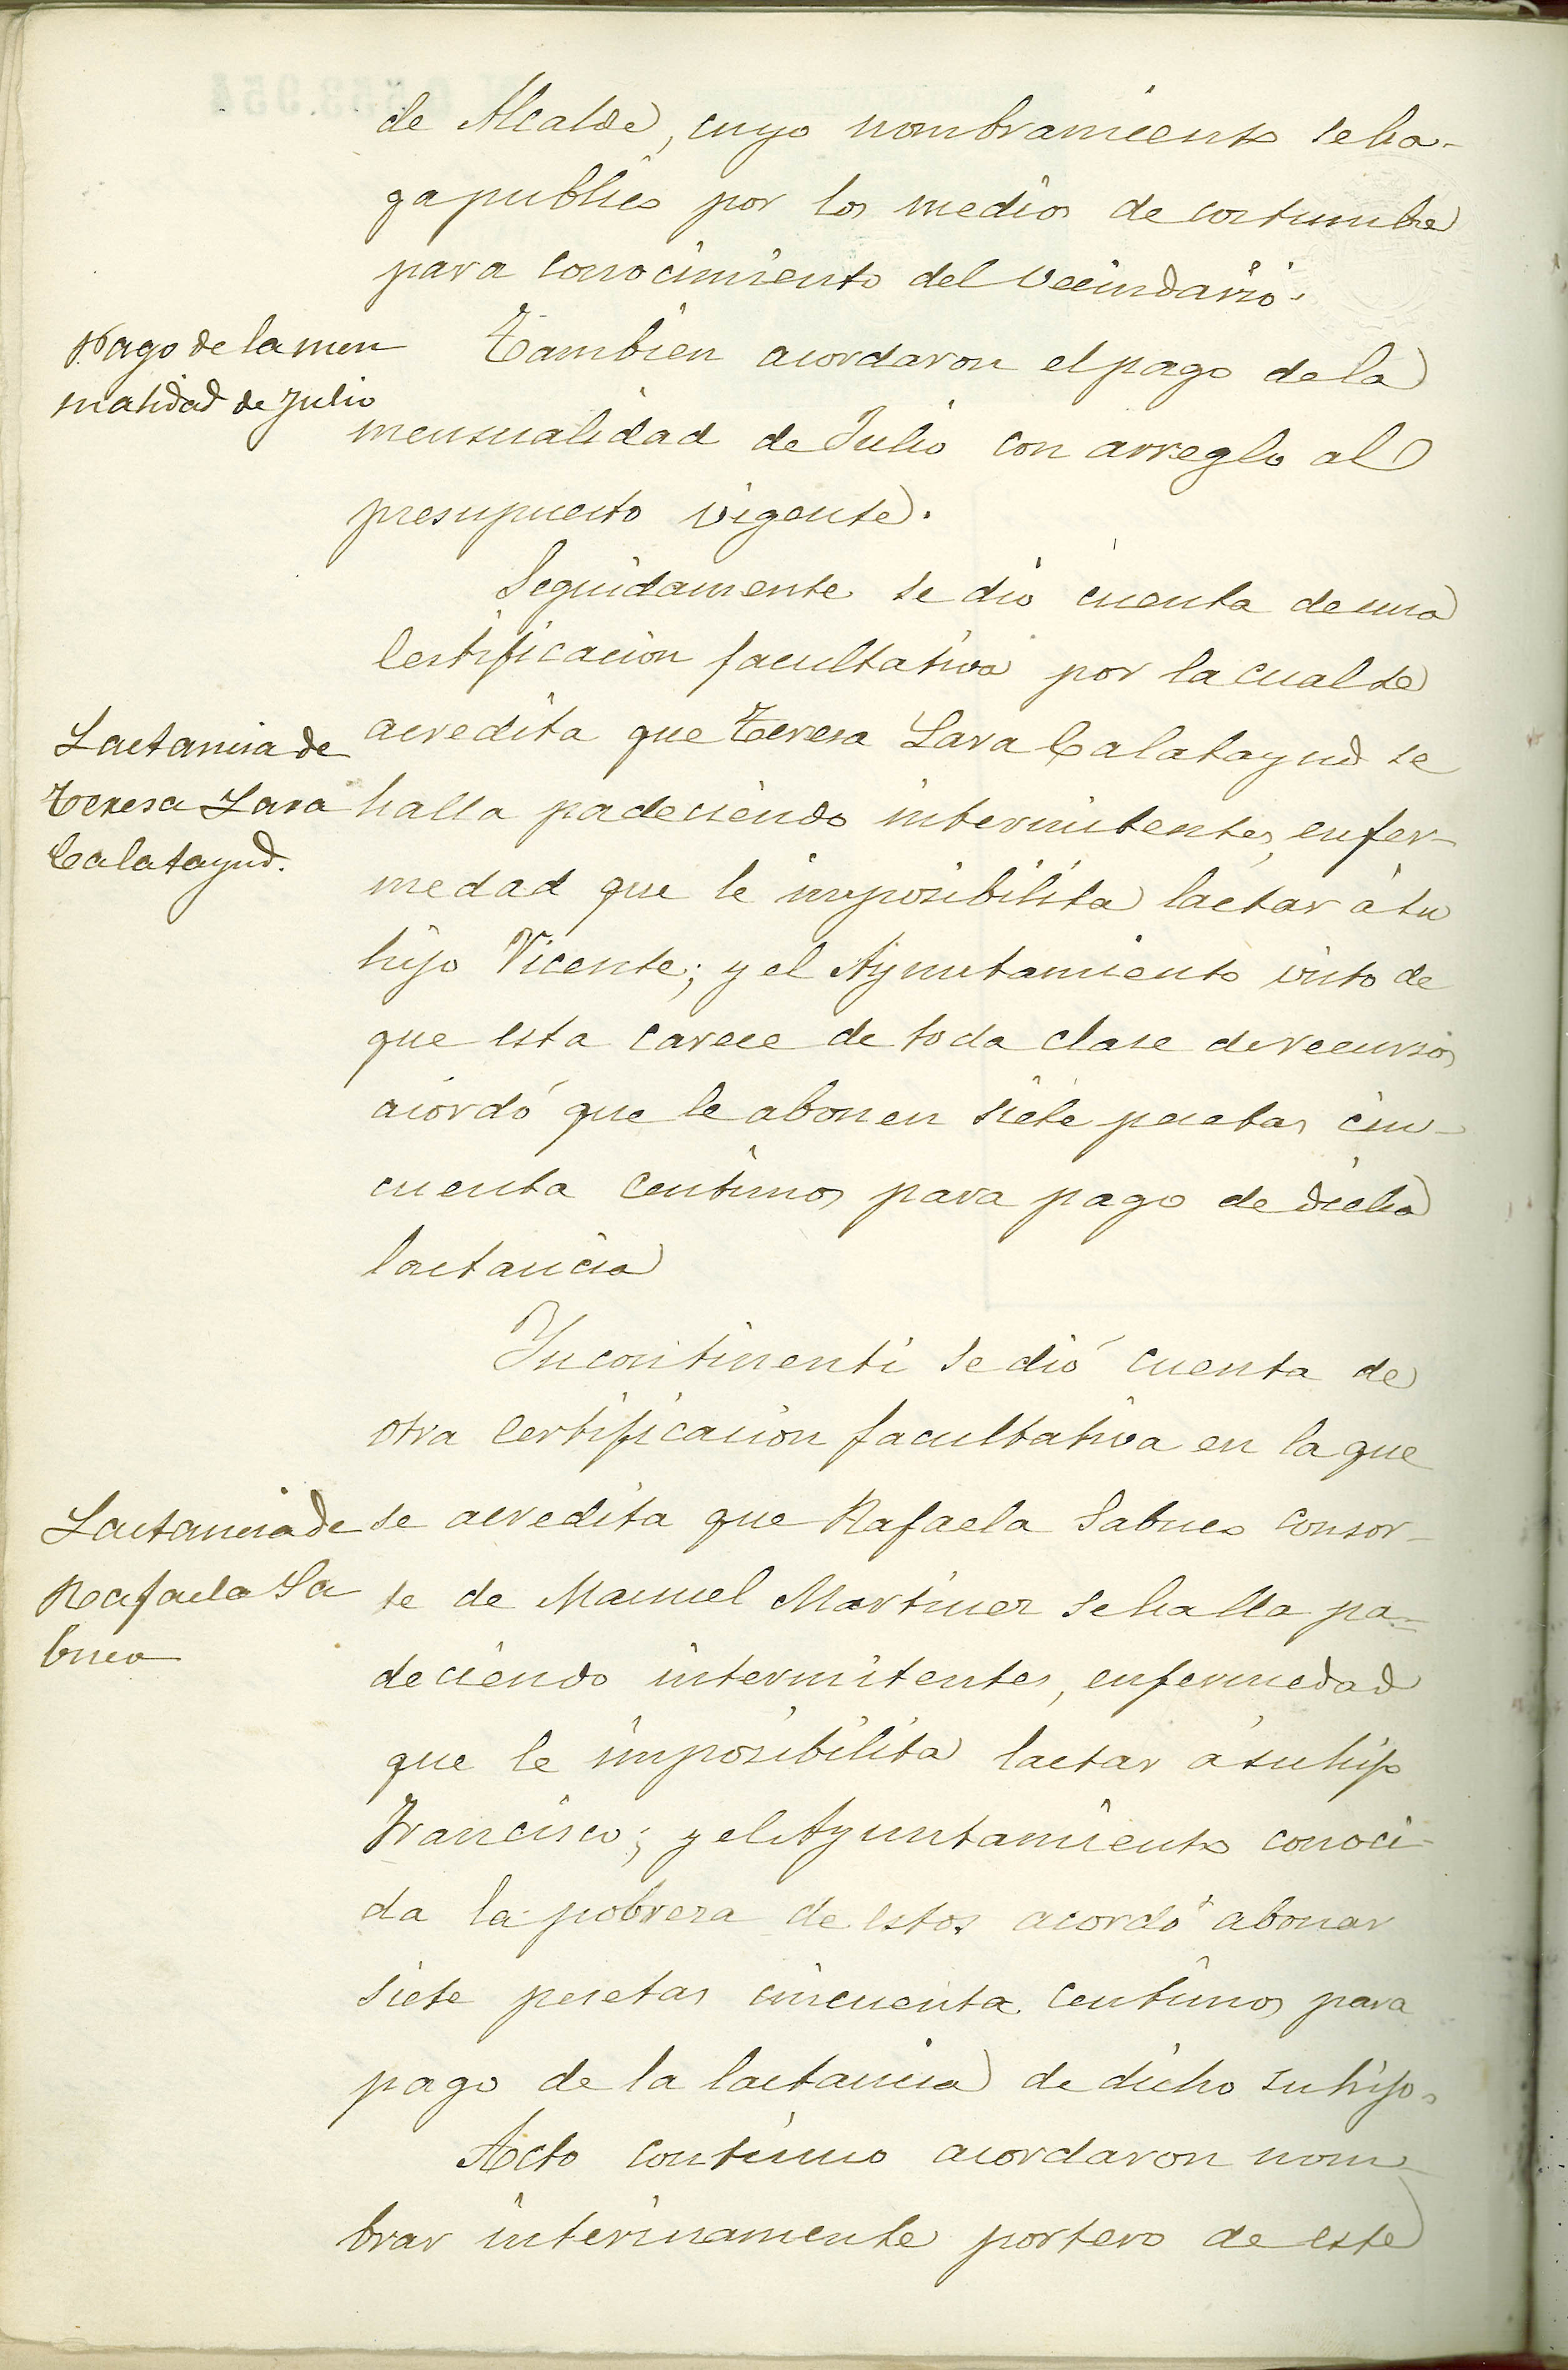 de Alcalde, cuyo nombramiento se ha-
ga publico por los medios de costumbre
para conocimiento del vecindario.
Pago de la men
sualidad de Julio
Tambien acordaron el pago de la
mensualidad de Julio con arreglo al
presupuesto vigente.
Seguidamente se dio cuenta de una
certificacion facultativa por la cual se
Lactancia de
Teresa Lara
Calatayud.
acredita que Teresa Lara Calatayud se
halla padeciendo intermitentes, enfer-
medad que le imposibilita lactar á su
hijo Vicente; y el Ayuntamiento visto de
que esta carece de toda clase de recursos
acordó que le abonen siete pesetas cin-
cuenta centimos para pago de dicha
lactancia
Incontinenti se dió cuenta de
otra certificacion facultativa en la que
Lactancia de
Rafaela Sa
buco
se acredita que Rafaela Sabuco consor-
te de Manuel Martinez se halla pa-
deciendo intermitentes, enfermedad
que le imposibilita lactar á su hijo
Francisco; y el Ayuntamiento conoci-
da la pobreza de estos acordó abonar
siete pesetas cincuenta centimos para
pago de la lactancia de dicho su hijo.
Acto continuo acordaron nom-
brar interinamente portero de este